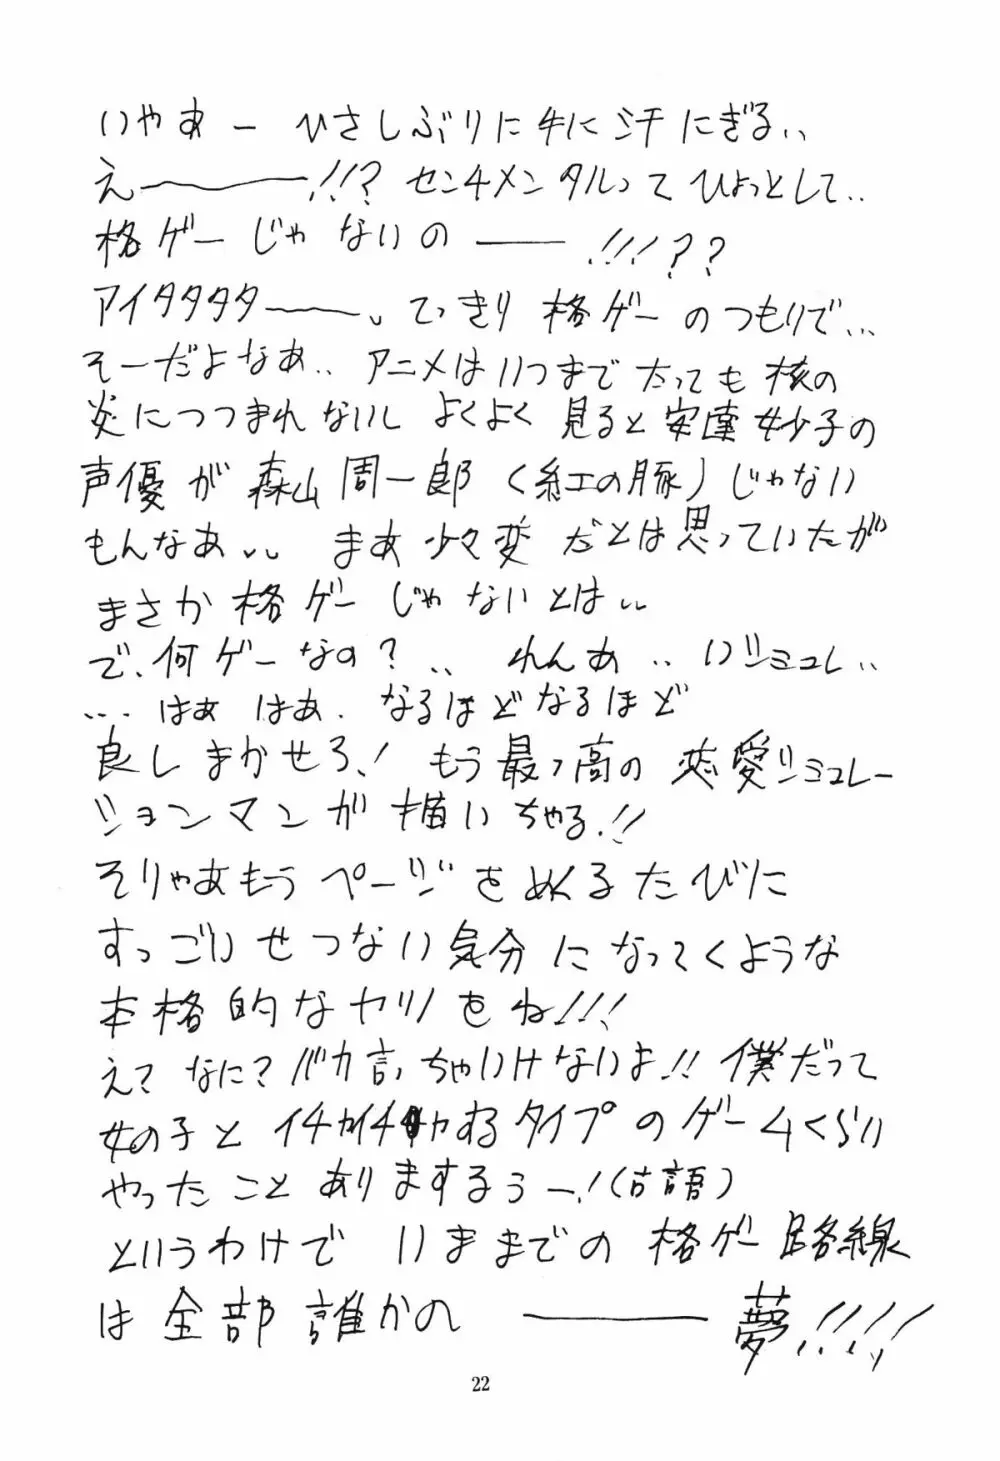 いやあー ひさしぶりに手に汗にぎる‥
えーーー!!? センチメンタルってひょっとして‥
格ゲーじゃないのーー!!!??
アイタタタタ——、てっきり格ゲーのつもりで…
そーだよなあ‥ アニメはいつまでたっても核の
炎につつまれないし よくよく見ると安達妙子の
声優が森山周一郎(紅の豚)じゃない
もんなあ‥ まあ少々変だとは思っていたが
まさか格ゲーじゃないとは‥
で、何ゲーなの? ‥ れんあ‥いシミュレ‥
… はあ はあ. なるほどなるほど
良しまかせろ! もう最っ高の恋愛シミュレー
ションマンガ描いちゃる!!
そりゃあもうページをめくるたびに
すっごいせつない気分になってくような
本格的なヤツをね!!!
え? なに? バカ言っちゃいけないよ!! 僕だって
女の子とイチャイチャするタイプのゲームくらい
やったことありまするぅー!(古語)
というわけでいままでの格ゲー路線
は全部誰かの ——— 夢!!!!
22